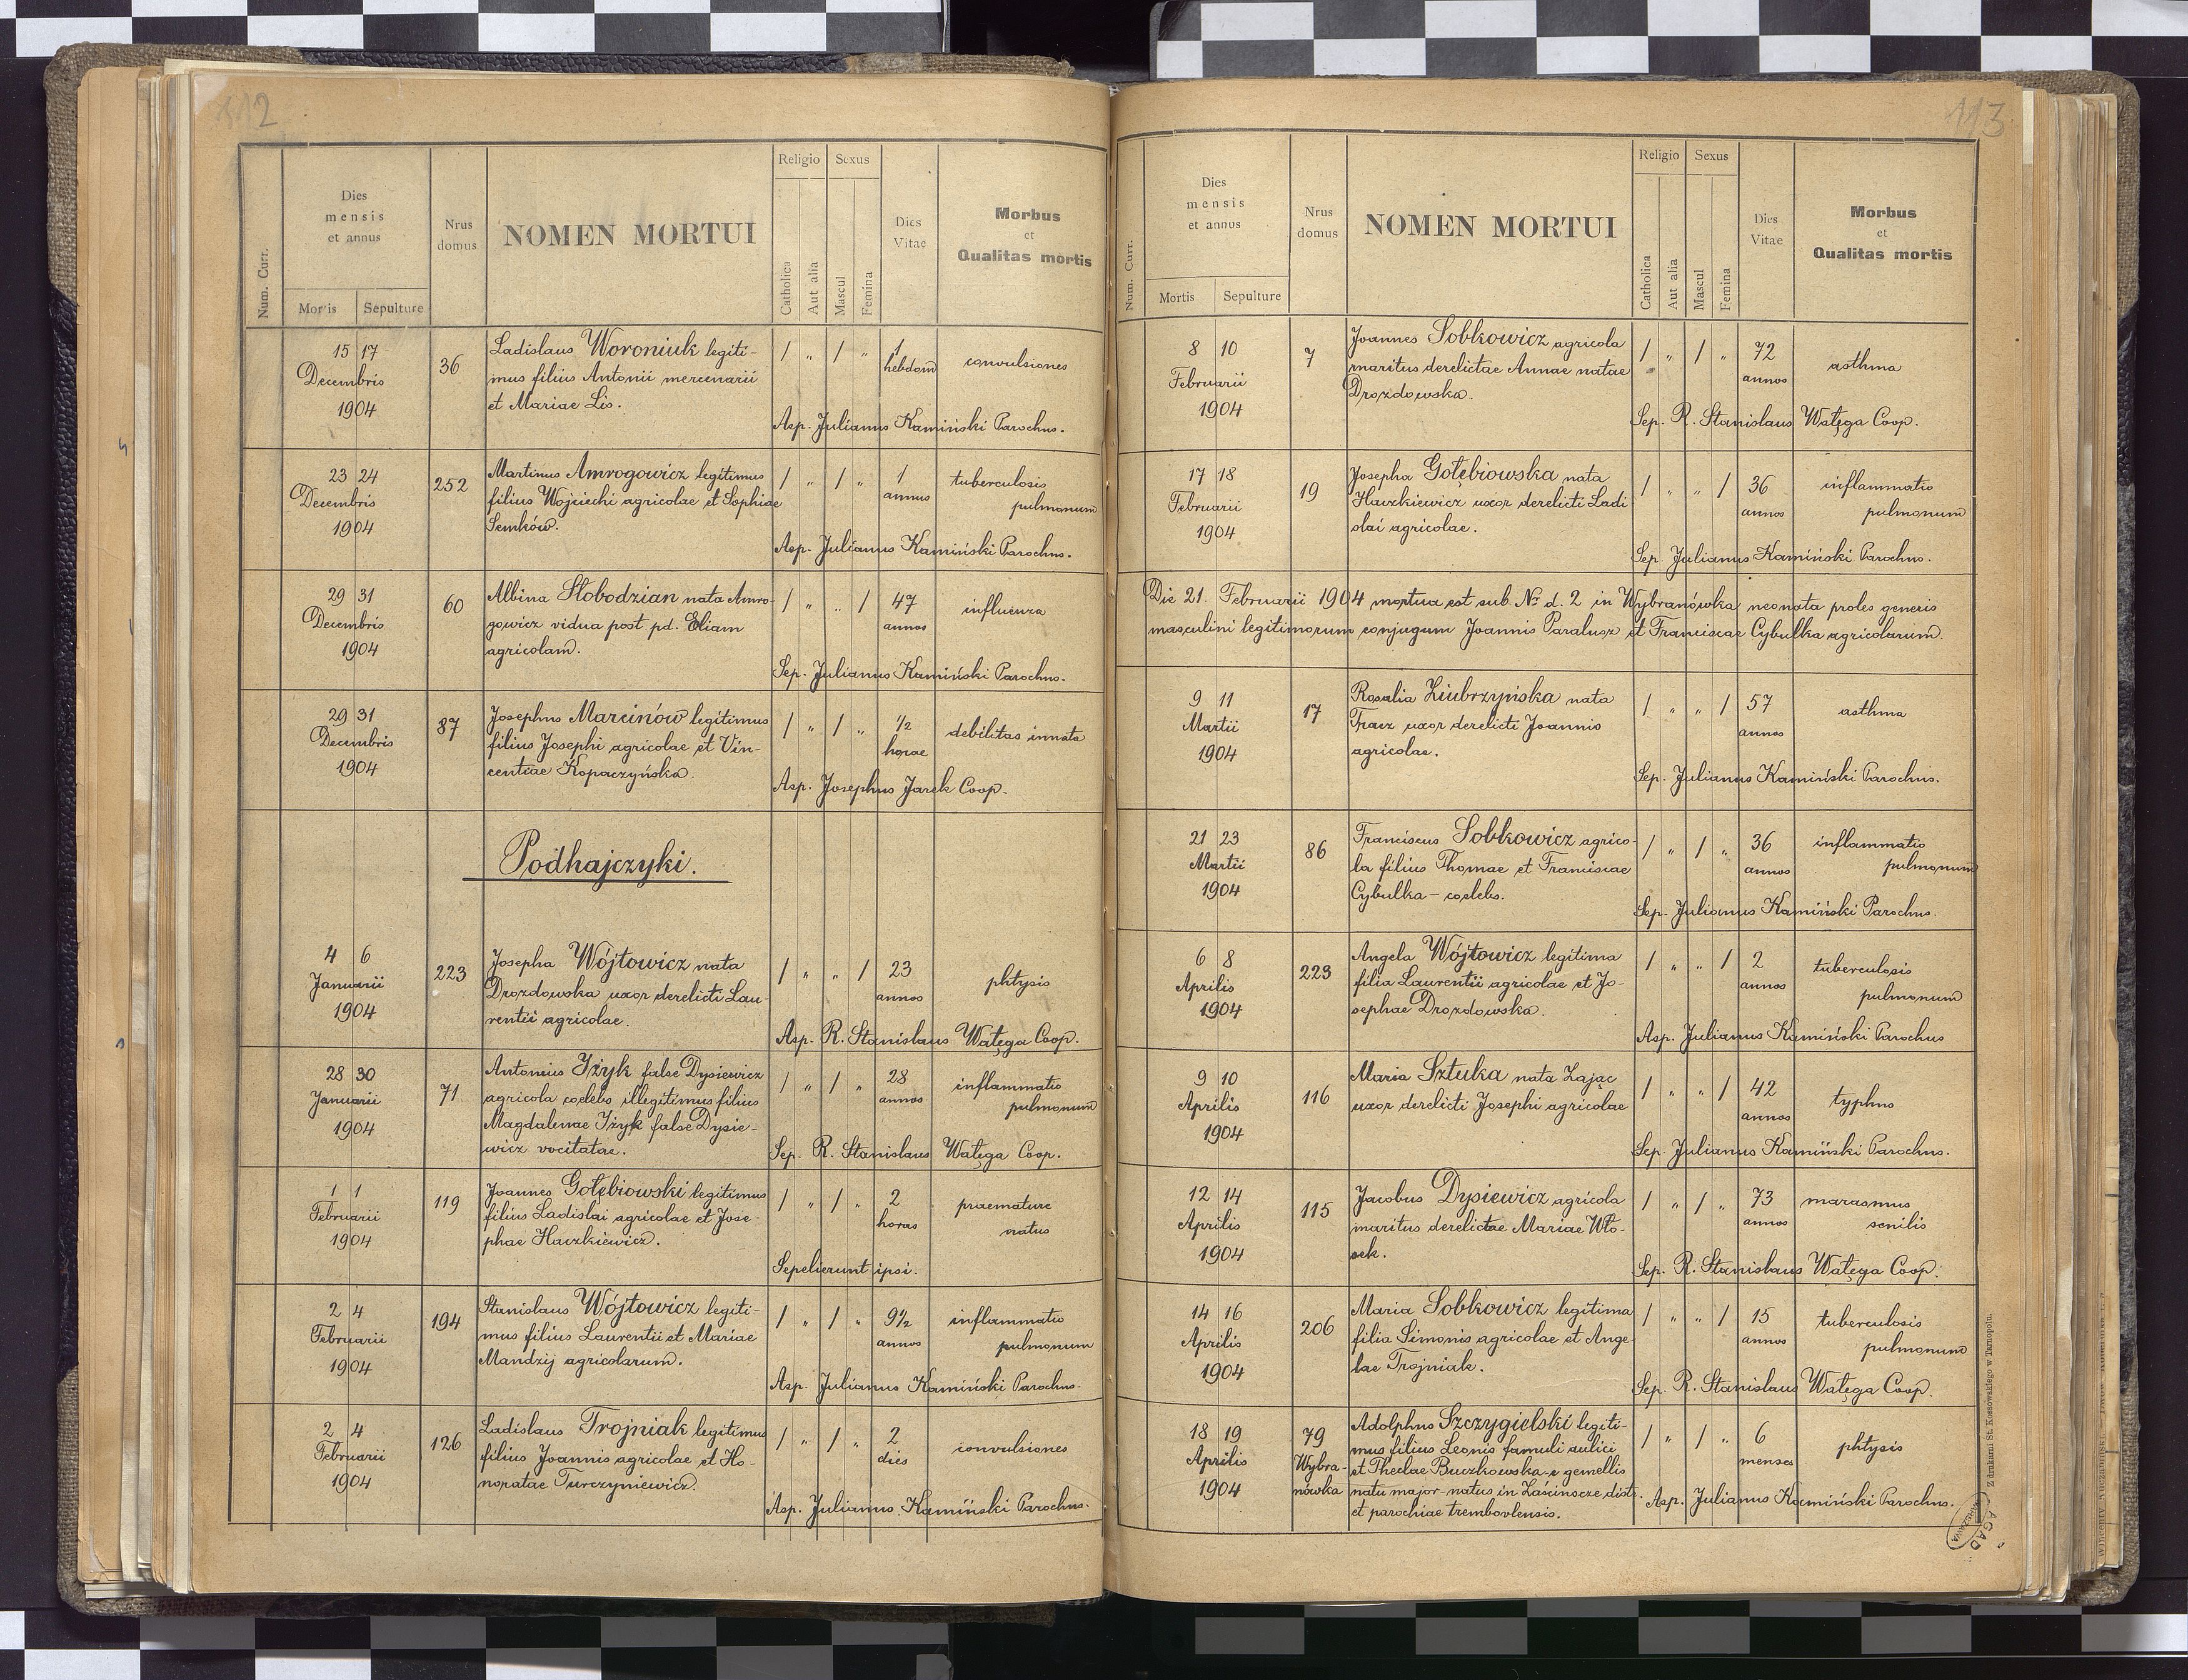 112
Num. Curr.
Dies
mensis
et annus
Mortis
Sepulture
Nrus
domus
NOMEN MORTUI
Religio
Sexus
Catholica
Aut alia
Mascul
Femina
Dies
Vitae
Morbus
et
Qualitas mortis
15 17
Decembris
1904
36
Ladislaus Woroniuk legiti-
mus filius Antonii mercenarii
et Mariae Lis.
/ " / "
1
hebdom
convulsiones
Asp. Julianus Kamiński Parochus.
23 24
Decembris
1904
252
Martinus Amrogowicz legitimus
filius Wojciechi agricolae et Sophiae
Semków.
/ " / "
1
annus
tuberculosis
pulmonum
Asp. Julianus Kamiński Parochus.
29 31
Decembris
1904
60
Albina Słobodzian nata Amro-
gowicz vidua post pd. Eliam
agricolam.
/ " " /
47
annos
influenza
Sep. Julianus Kamiński Parochus.
29 31
Decembris
1904
87
Josephus Marcinów legitimus
filius Josephi agricolae et Vin-
centiae Kopaczyńska.
/ " / "
1/2
horae
debilitas innata
Asp. Josephus Jarek Coop.
Podhajczyki.
4 6
Januarii
1904
223
Josepha Wójtowicz nata
Drozdowska uxor derelicti Lau-
rentii agricolae.
/ " " /
23
annos
phtysis
Asp. R. Stanislaus Wałęga Coop.
28 30
Januarii
1904
71
Antonius Iżyk false Dysiewicz
agricola coelebs illegitimus filius
Magdalenae Iżyk false Dysie-
wicz vocitatae.
/ " / "
28
annos
inflammatio
pulmonum
Sep. R. Stanislaus Wałęga Coop.
1 1
Februarii
1904
119
Joannes Gołębiowski legitimus
filius Ladislai agricolae et Jose-
phae Haczkiewicz.
/ " / "
2
horas
praemature
natus
Sepelierunt ipsi.
2 4
Februarii
1904
194
Stanislaus Wójtowicz legiti-
mus filius Laurentii et Mariae
Mandzij agricolarum.
/ " / "
9 1/2
annos
inflammatio
pulmonum
Asp. Julianus Kamiński Parochus.
2 4
Februarii
1904
126
Ladislaus Trojniak legitimus
filius Joannis agricolae et Ho-
noratae Turczyniewicz.
/ " / "
2
dies
convulsiones
Asp. Julianus Kamiński Parochus.
113
Num. Curr.
Dies
mensis
et annus
Mortis
Sepulture
Nrus
domus
NOMEN MORTUI
Religio
Sexus
Catholica
Aut alia
Mascul
Femina
Dies
Vitae
Morbus
et
Qualitas mortis
8 10
Februarii
1904
7
Joannes Sobkowicz agricola
maritus derelictae Annae natae
Drozdowska.
/ " / "
72
annos
asthma
Sep. R. Stanislaus Wałęga Coop.
17 18
Februarii
1904
19
Josepha Gołębiowska nata
Haczkiewicz uxor derelicti Ladi
slai agricolae.
/ " " /
36
annos
inflammatio
pulmonum
Sep. Julianus Kamiński Parochus.
Die 21. Februarii 1904 mortua est sub. No d. 2 in Wybranówka neonata proles generis
masculini legitimorum conjugum Joannis Paralusz et Franciscae Cybulka agricolarum.
9 11
Martii
1904
17
Rosalia Ziubrzyńska nata
Tracz uxor derelicti Joannis
agricolae.
/ " " /
57
annos
asthma
Sep. Julianus Kamiński Parochus.
21 23
Martii
1904
86
Franciscus Sobkowicz agrico-
la filius Thomae et Franciscae
Cybulka - coelebs.
/ " / "
36
annos
inflammatio
pulmonum
Sep. Julianus Kamiński Parochus.
6 8
Aprilis
1904
223
Angela Wójtowicz legitima
filia Laurentii agricolae et Jo-
sephae Drozdowska.
/ " " /
2
annos
tuberculosis
pulmonum
Asp. Julianus Kamiński Parochus
9 10
Aprilis
1904
116
Maria Sztuka nata Zając
uxor derelicti Josephi agricolae
/ " " /
42
annos
typhus
Sep. Julianus Kamiński Parochus.
12 14
Aprilis
1904
115
Jacobus Dysiewicz agricola
maritus derelictae Mariae Wło-
sek.
/ " / "
73
annos
marasmus
senilis
Sep. R. Stanislaus Wałęga Coop.
14 16
Aprilis
1904
206
Maria Sobkowicz legitima
filia Simonis agricolae et Ange
lae Trojniak.
/ " " /
15
annos
tuberculosis
pulmonum
Sep. R. Stanislaus Wałęga Coop.
18 19
Aprilis
1904
79
Wybra-
nówka
Adolphus Szczygielski legiti-
mus filius Leonis famuli aulici
et Theclae Buczkowska e gemellis
natu major-natus in Zaścinocze distr.
et parochiae trembovlensis.
/ " / "
6
menses
phtysis
Asp. Julianus Kamiński Parochus.
Z drukarni St. Kossowskiego w Tarnopolu.
AGAD
WARSZAWA